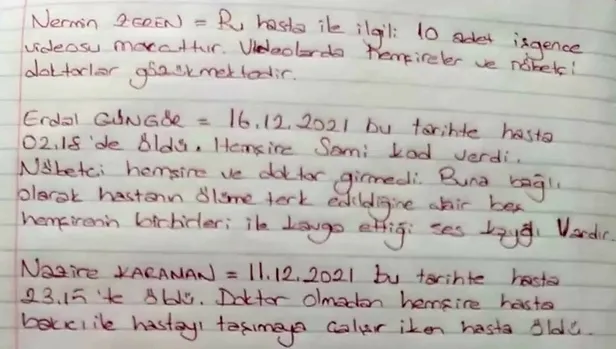 Nermin ZEREN = Bu hasta ile ilgili 10 adet işgence
videosu mevcuttur. Videolarda hemşireler ve nöbetçi
doktorlar gözükmektedir.
Erdal GÜNGÖR = 16.12.2021 bu tarihte hasta
02.18'de öldü. Hemşire Sami kod verdi.
Nöbetci hemşire ve doktor girmedi. Buna bağlı
olarak hastanın ölüme terk edildiğine dair beş
hemşirenin birbirleri ile kavga ettiği ses kaydı Vardır.
Nazire KARANAN = 11.12.2021 bu tarihte hasta
23.15'te öldü. Doktor olmadan hemşire hasta
bakıcı ile hastayı taşımaya çalışır iken hasta öldü.